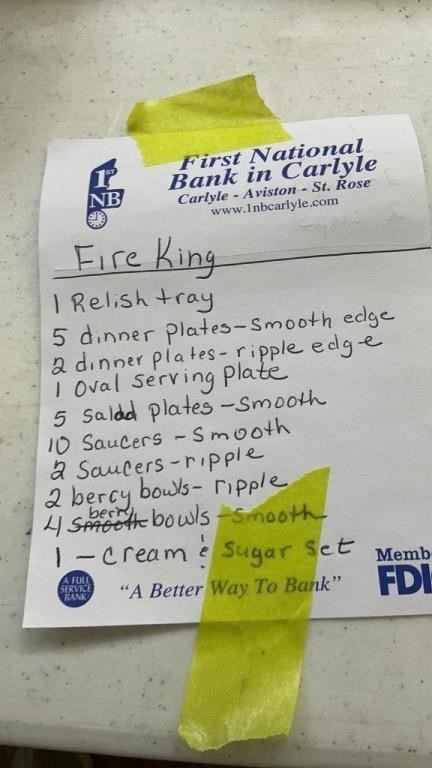 1ST
NB
First National
Bank in Carlyle
Carlyle - Aviston - St. Rose
www.1nbcarlyle.com
Fire King
1 Relish tray
5 dinner plates - Smooth edge
2 dinner plates - ripple edge
1 Oval serving plate
5 Salad plates - Smooth
10 Saucers - Smooth
2 Saucers - ripple
2 berry bowls - ripple
4 Smooth berry bowls - Smooth
1 - Cream & Sugar set
A FULL
SERVICE
BANK
"A Better Way To Bank"
Memb
FDI